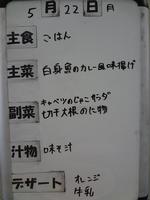 5月22日
主食 ごはん
主菜 白身魚のカレー風味揚げ
副菜 キャベツのじゃこサラダ
切干大根のに物
汁物 味そ汁
デザート オレンジ
牛乳